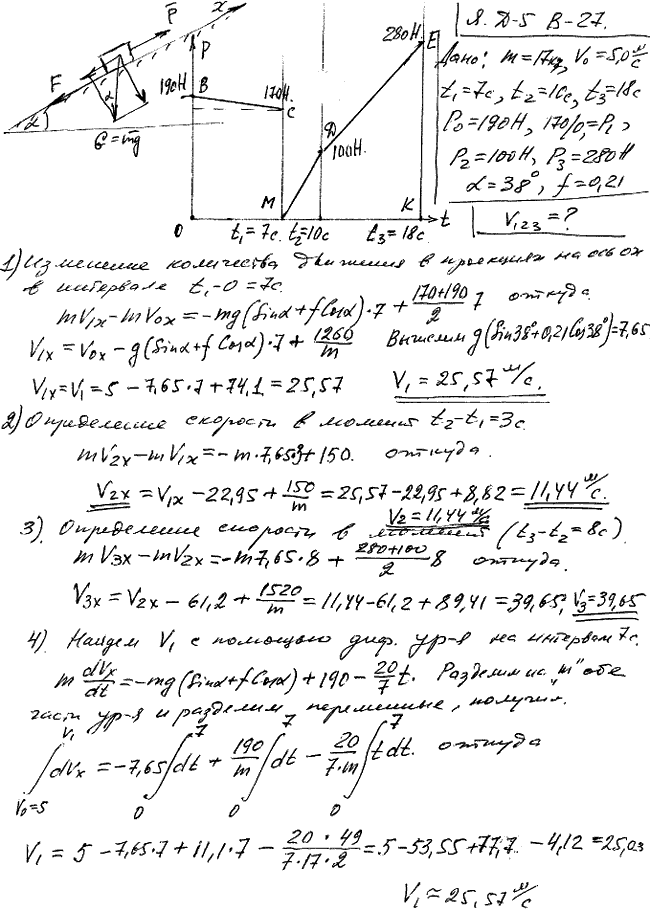 Я. Д-5 В-27.
Дано: m=17кг, V₀=5,0 м/с
t₁=7с, t₂=10с, t₃=18с
P₀=190Н, 170/0,=P₁,
P₂=100Н, P₃=280Н
α=38°, f=0,21
V₁₂₃=?
x
P̄
F
α
α
Ḡ=m̄g
P
190Н
B
170Н.
C
280Н
E
D
100Н.
O
M
K
t
t₁=7с. t₂=10с t₃=18с
1) Изменение количества движения в проекциях на ось ox
в интервале t₁-0=7с.
mV₁ₓ-mV₀ₓ=-mg(Sinα+fCosα)·7+(170+190)/2 7 откуда.
V₁ₓ=V₀ₓ-g(Sinα+fCosα)·7+1260/m Вычислим g(Sin38°+0,21Cos38°)=7,65
V₁ₓ=V₁=5-7,65·7+74,1=25,57 V₁=25,57 м/с.
2) Определение скорости в момент t₂-t₁=3с.
mV₂ₓ-mV₁ₓ=-m·7,65·3+150. откуда.
V₂ₓ=V₁ₓ-22,95+150/m=25,57-22,95+8,82=11,44 м/с.
V₂=11,44 м/с
3) Определение скорости в момент (t₃-t₂=8с)
mV₃ₓ-mV₂ₓ=-m7,65·8+(280+100)/2 8 откуда.
V₃ₓ=V₂ₓ-61,2+1520/m=11,44-61,2+89,41=39,65; V₃=39,65
4) Найдем V₁ с помощью диф. ур-я на интервале 7с.
m dVₓ/dt=-mg(Sinα+fCosα)+190-20/7 t. Разделим на "m" обе
части ур-я и разделим переменные, получим.
∫_{V₀=5}^{V₁} dVₓ=-7,65∫_0^7 dt+190/m ∫_0^7 dt-20/(7·m) ∫_0^7 tdt. откуда
V₁=5-7,65·7+11,1·7-(20·49)/(7·17·2)=5-53,55+77,7-4,12=25,03
V₁≈25,57 м/с